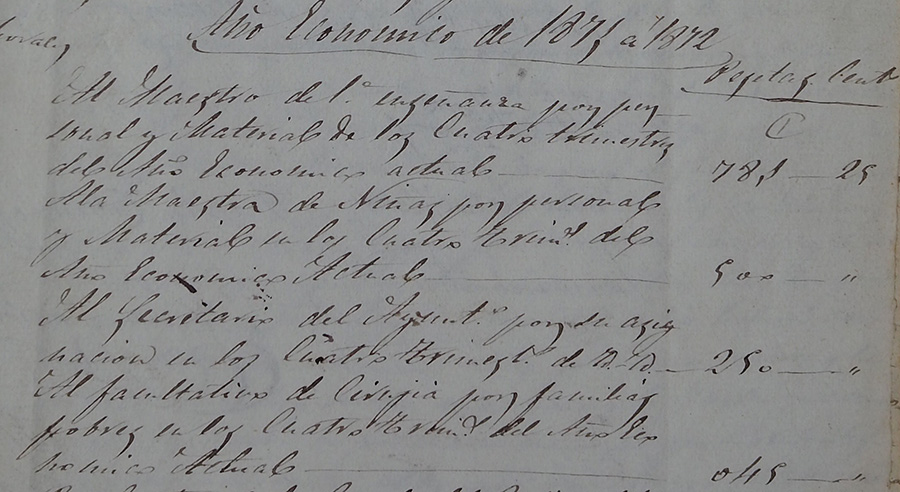 Año Economico de 1871 a 1872
Pesetas Cent.
Al Maestro de 1.ª enseñanza por per
sonal y Material de los Cuatro trimestres
del Año Economico actual — 781 — 25
Ala Maestra de Niñas por personal
y Material en los Cuatro trim.s del
Año Economico Actual — 500 — "
Al Secretario del Ayunt.o por su asig
nacion en los Cuatro trimest.s de — 250 — "
Al facultativo de Cirujia por familias
pobres en los Cuatro trim.s del Año Eco
nomico Actual — 045 — "